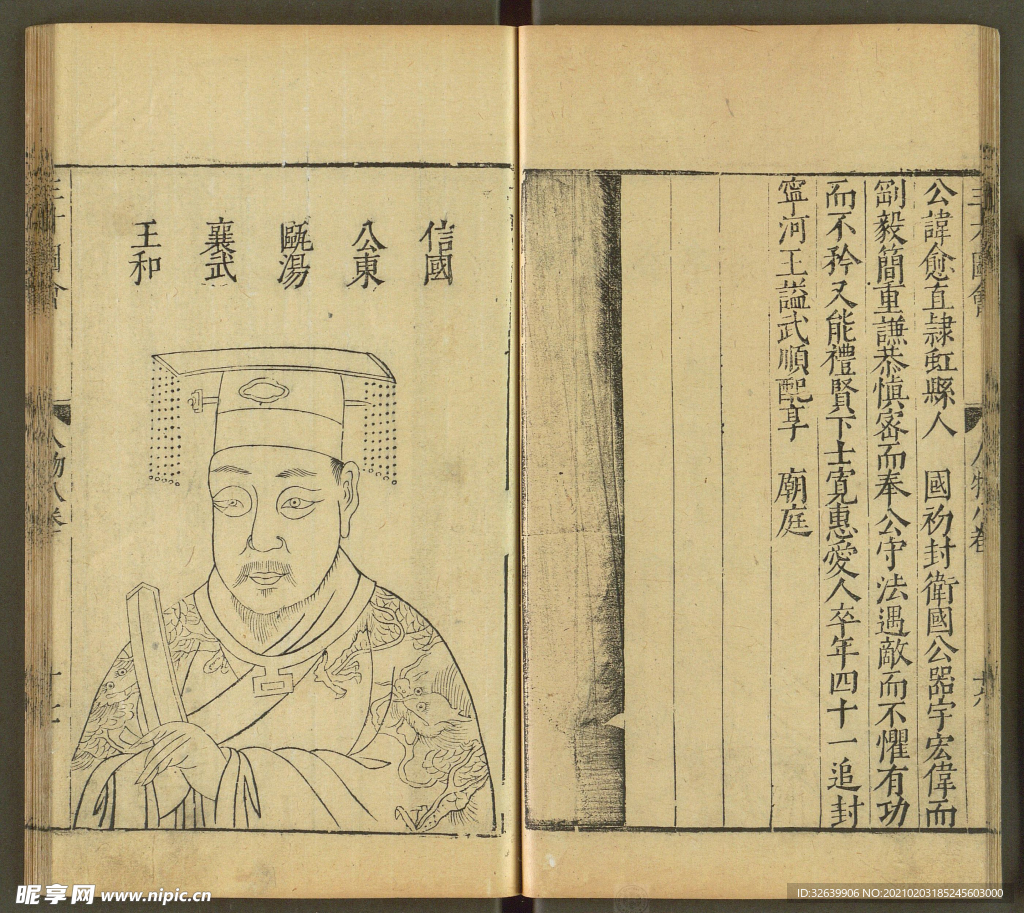 三才圖會
人物八卷
十六
公諱愈直隷虹縣人　國初封衛國公器宇宏偉而
剛毅簡重謙恭慎密而奉公守法遇敵而不懼有功
而不矜又能禮賢下士寛惠愛人卒年四十一追封
寧河王謚武順配享　廟庭
信國
公東
甌湯
襄武
王和
人物八卷
十七
昵享网 www.nipic.cn
ID:32639906 NO:20210203185245603000